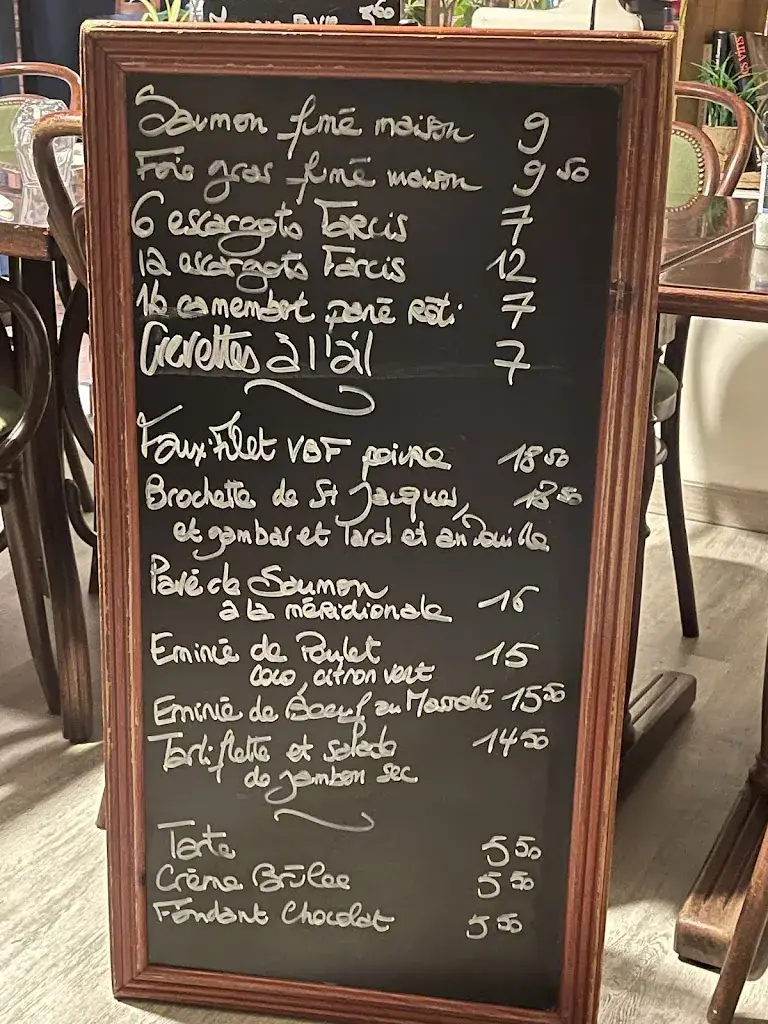 Saumon fumé maison 9
Foie gras fumé maison 9 50
6 escargots Farcis 7
12 escargots Farcis 12
camembert pané rôti 7
Crevettes à l'ail 7
Faux-Filet VBF poivre 18 50
Brochette de St Jacques, 18 50
et gambas et lard et andouille
Pavé de Saumon 16
à la méridionale
Eminé de Poulet 15
coco, citron vert
Eminé de Boeuf au Massalé 15 50
Tartiflette et salade 14 50
de jambon sec
Tarte 5 50
Crème Brûlée 5 50
Fondant Chocolat 5 50